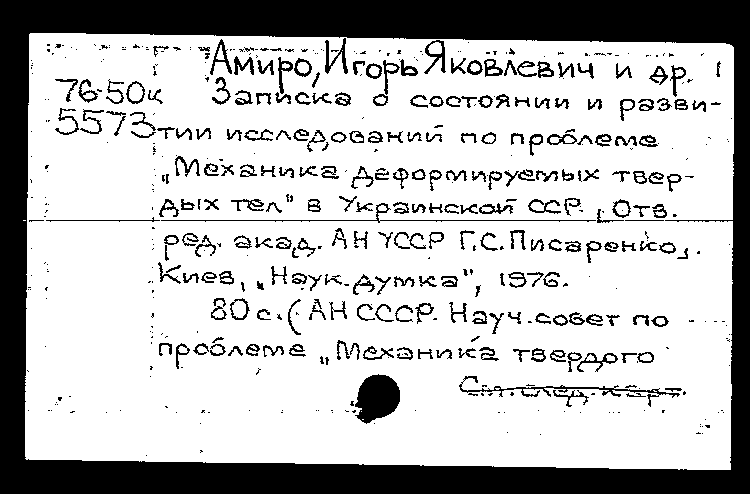 Амиро, Игорь Яковлевич и др. 1
76-50к Записка о состоянии и разви-
5573 тии исследований по проблеме
„Механика деформируемых твер-
дых тел" в Украинской ССР. [Отв.
ред. акад. АН УССР Г.С. Писаренко].
Киев, „Наук. думка", 1976.
80 с. (АН СССР. Науч. совет по
проблеме „Механика твердого
См. след. карт.